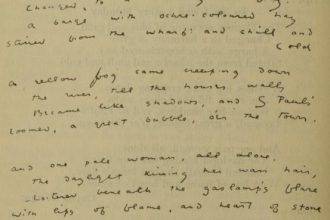 Changed, to a
a barge with ochre-coloured hay
stirred from the wharf: and chill and
cold
a yellow fog came creeping down
the river, till the houses' walls
Became like shadows, and S Paul's
Loomed, a great bubble, o'er the town.
and one pale woman, all alone,
the daylight kissing her wan hair,
Loitered beneath the gaslamps flare
with lips of flame, and heart of stone